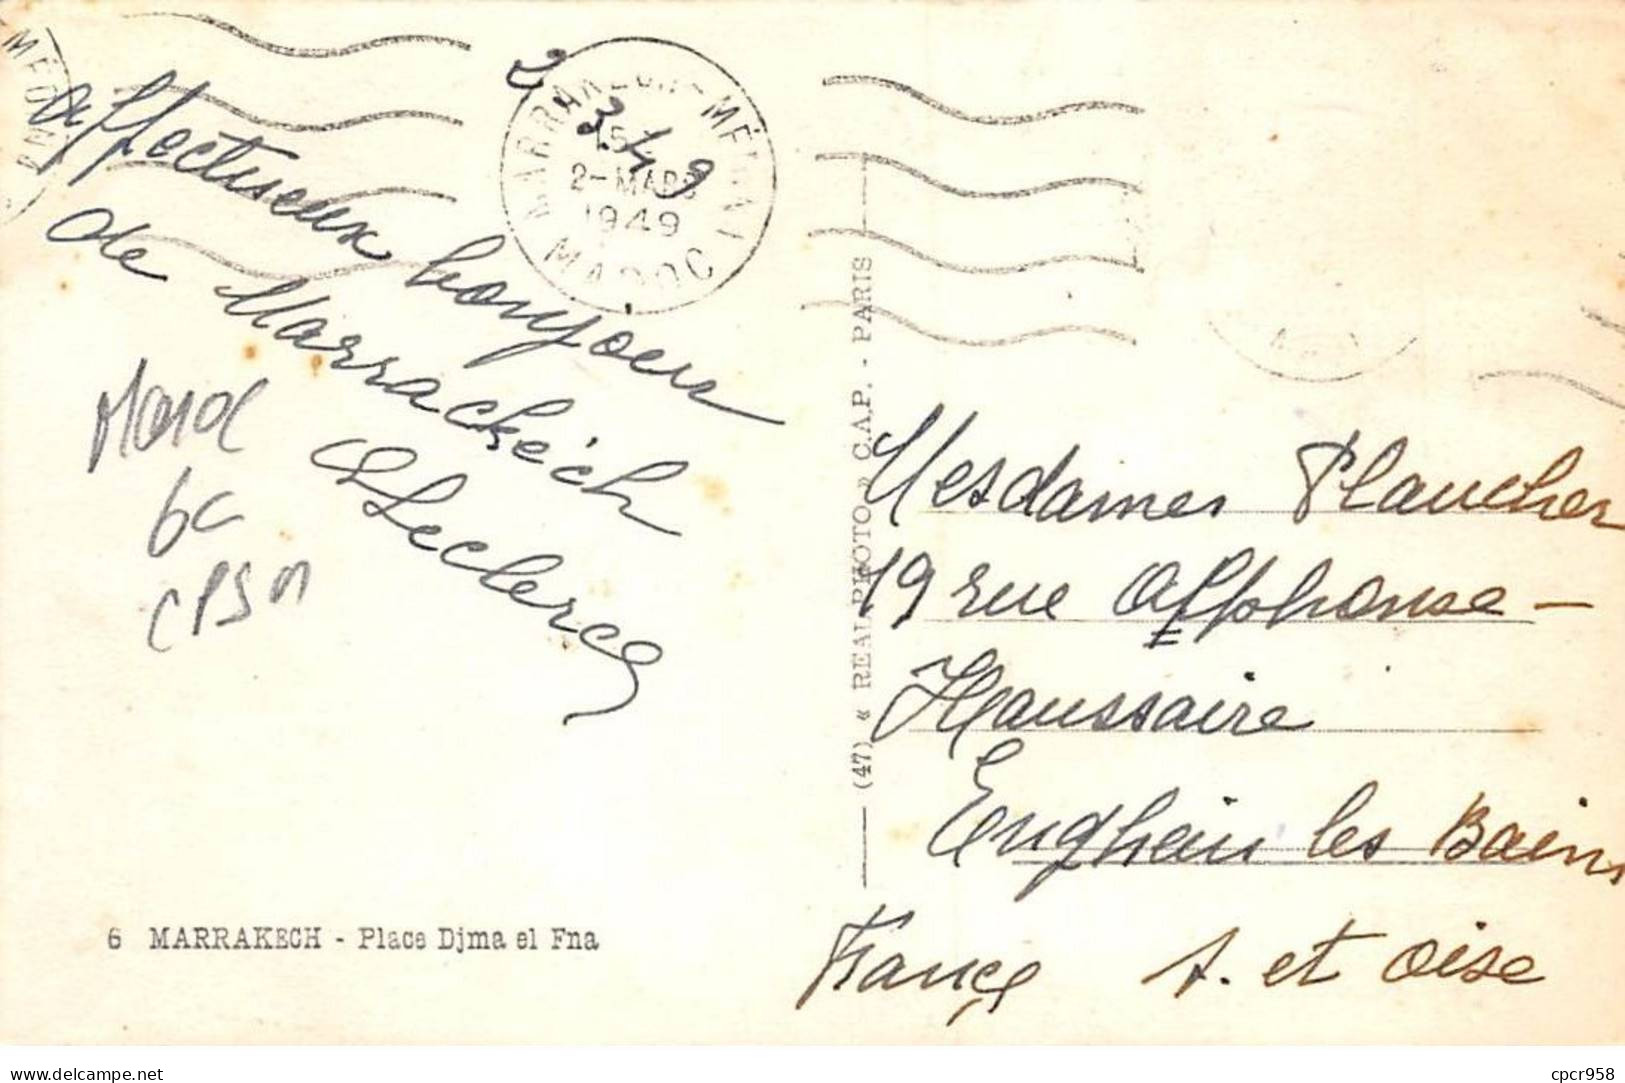 MARRAKECH-MÉDINA
MAROC
2-MARS
1949
2 3 49
affectueux bonjour
de Marrackéch
Leclercq
Maroc
6c
CPSM
6 MARRAKECH - Place Djma el Fna
(47) « REAL PHOTO » C.A.P. - PARIS
Mesdames Plaucher
19 rue Alphonse -
Haussaire
Enghein les Bains
France S. et Oise
cpcr958